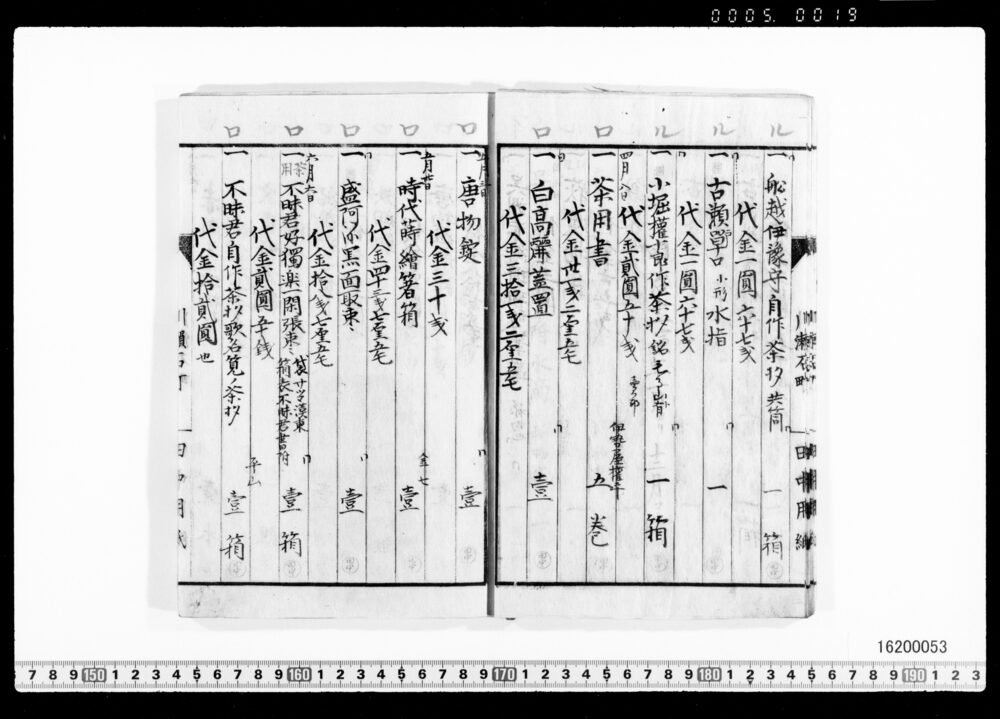 0005. 0019
ル
一 船越伊豫守自作茶杓 共筒 一箱
代金一圓六十七戋
ル
一 古瀬戸 小形 水指 一
代金一圓六十七戋
ル
一 小堀權十郎作茶杓 銘 一箱
代金貳圓五十戋
四月八日
ロ
一 茶用書 五巻
代金廿一戋二至五毛
ロ
一 白高麗蓋置 壹
代金三拾一戋二至五毛
ロ
一 唐物錠 壹
代金三十戋
ロ
一 時代時繪箸箱 壹
代金四十三戋七至五毛
ロ
一 盛阿弥黒面取棗 壹
代金拾八戋七至五毛
ロ
一 茶用 不昧君好獨楽一閑張棗 袋廿字漢東 箱表不昧君書附 壹箱
代金貳圓五十銭
ロ
一 不昧君自作茶杓歌名筧ノ茶杓 壹箱
代金拾貳圓也
平山
16200053
7 8 9 150 1 2 3 4 5 6 7 8 9 160 1 2 3 4 5 6 7 8 9 170 1 2 3 4 5 6 7 8 9 180 1 2 3 4 5 6 7 8 9 190 1 2 3